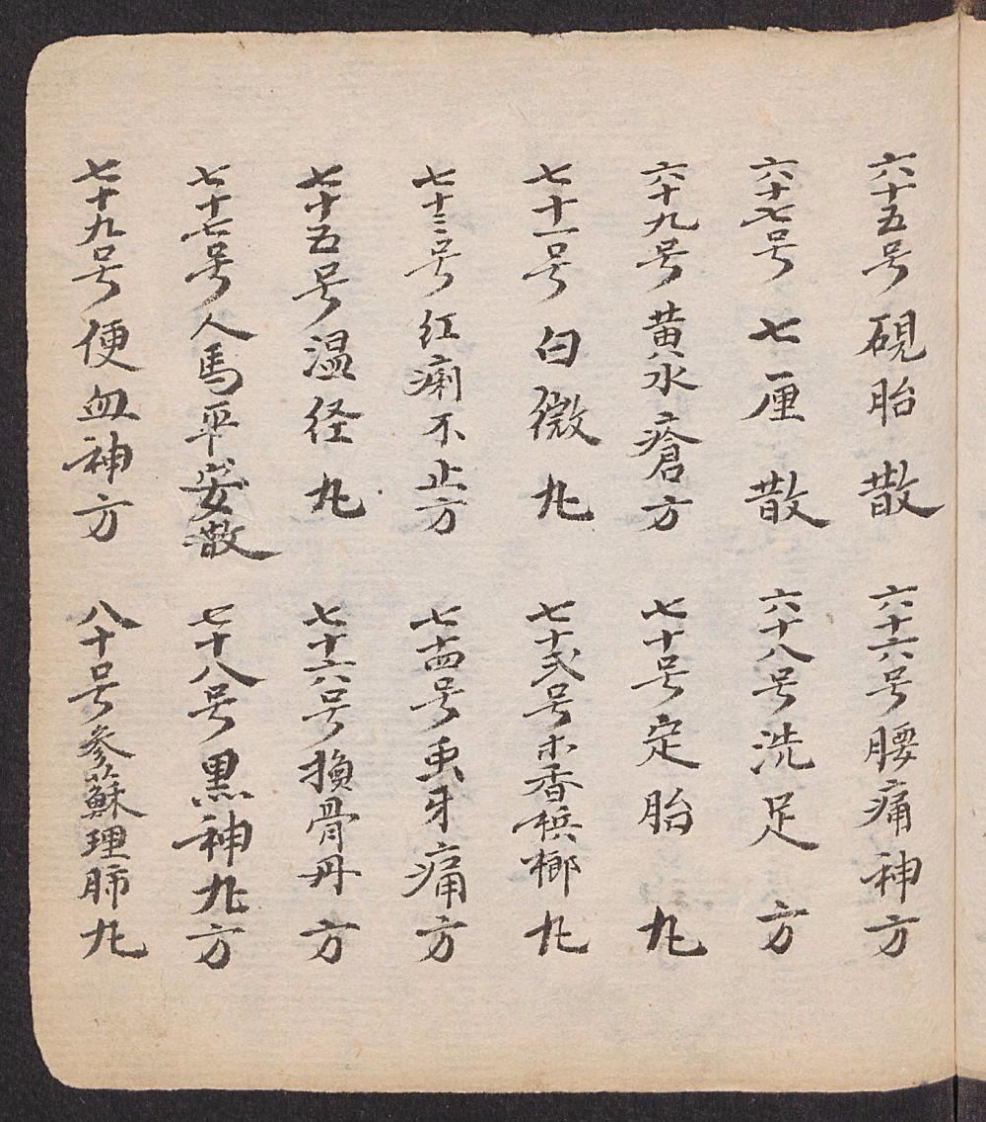 六十五号 硯胎散 六十六号 腰痛神方
六十七号 七厘散 六十八号 洗足方
六十九号 黄水瘡方 七十号 定胎丸
七十一号 白微丸 七十弍号 木香梹榔丸
七十三号 红痢不止方 七十四号 虫牙痛方
七十五号 温径丸 七十六号 換骨丹方
七十七号 人馬平安散 七十八号 黒神丸方
七十九号 便血神方 八十号 参蘇理肺丸